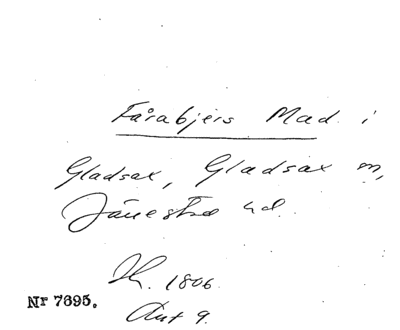 Fårabjers Mad i
Gladsax, Gladsax sn,
Järrestad hd.
Sk. 1806.
Nr 7695.
Aut 9.